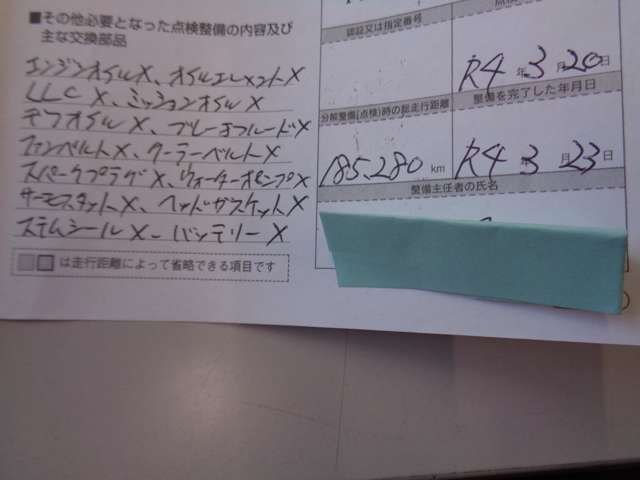 ■その他必要となった点検整備の内容及び
主な交換部品
エンジンオイルX、オイルエレメントX
LLC X、ミッションオイルX
デフオイルX、ブレーキフルードX
ファンベルトX、クーラーベルトX
スパークプラグX、ウォーターポンプX
サーモスタットX、ヘッドガスケットX
ステムシールX、バッテリーX
は走行距離によって省略できる項目です
認証又は指定番号
R4年3月20日
整備を完了した年月日
分解整備(点検)時の総走行距離
185,280 km
R4 3月23日
整備主任者の氏名